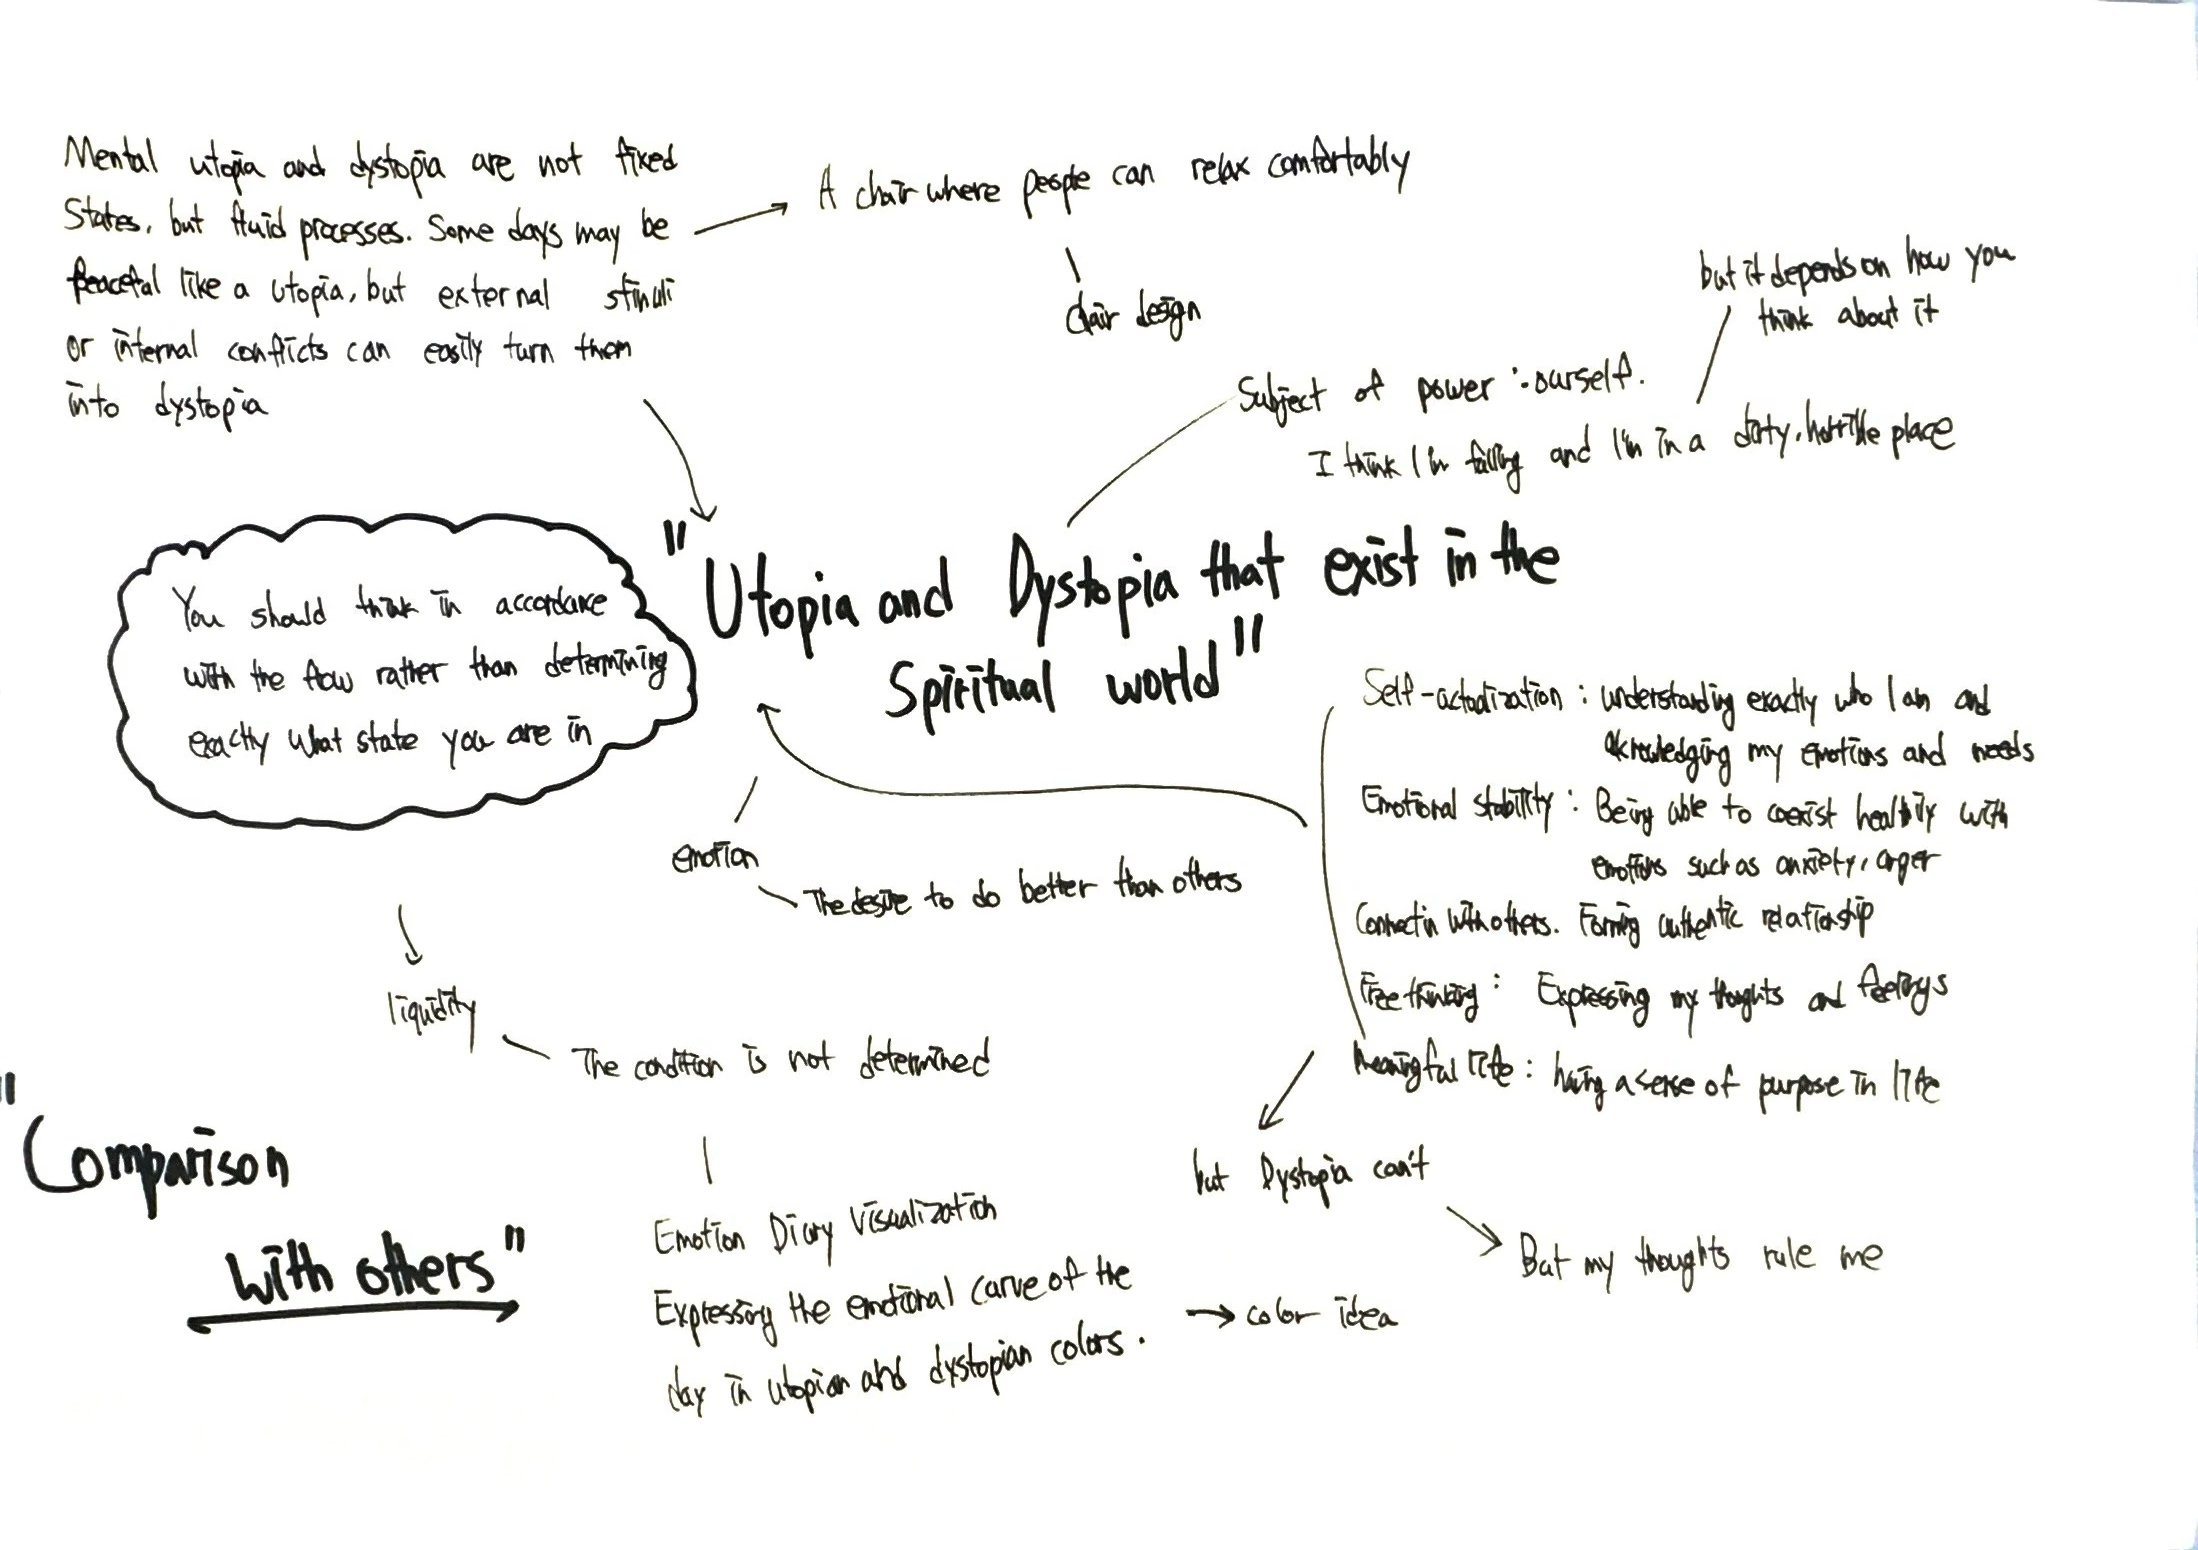 Mental utopia and dystopia are not fixed
States, but fluid processes. Some days may be
peaceful like a utopia, but external stimuli
or internal conflicts can easily turn them
into dystopia
A chair where people can relax comfortably
chair design
but it depends on how you
think about it
Subject of power : ourself.
I think I'm falling and I'm in a dirty, horrible place
"Utopia and Dystopia that exist in the
Spiritual world"
You should think in accordance
with the flow rather than determining
exactly what state you are in
Self-actualization : understanding exactly who I am and
aknowledging my emotions and needs
Emotional stability : Being able to coexist healthily with
emotions such as anxiety, anger
Connectin with others. Forming authentic relationship
Free thinking : Expressing my thoughts and feelings
Meaningful life : having a sense of purpose in life
emotion
The desire to do better than others
liquidity
The condition is not determined
"Comparison
with others"
but Dystopia can't
But my thoughts rule me
Emotion Diary Visualization
Expressing the emotional curve of the
day in utopian and dystopian colors.
color idea